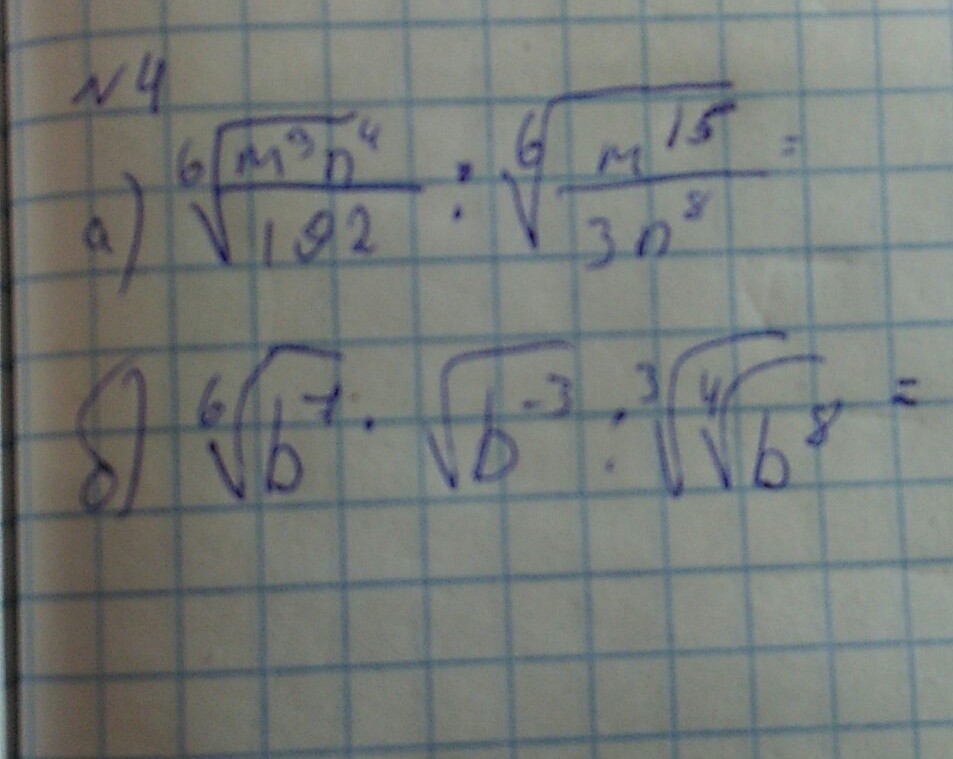 №4
а) ⁶√(m⁹n⁴/192) : ⁶√(m¹⁵/3n⁸) =
б) ⁶√(b⁻¹) · √(b⁻³) : ³√(⁴√(b⁸)) =